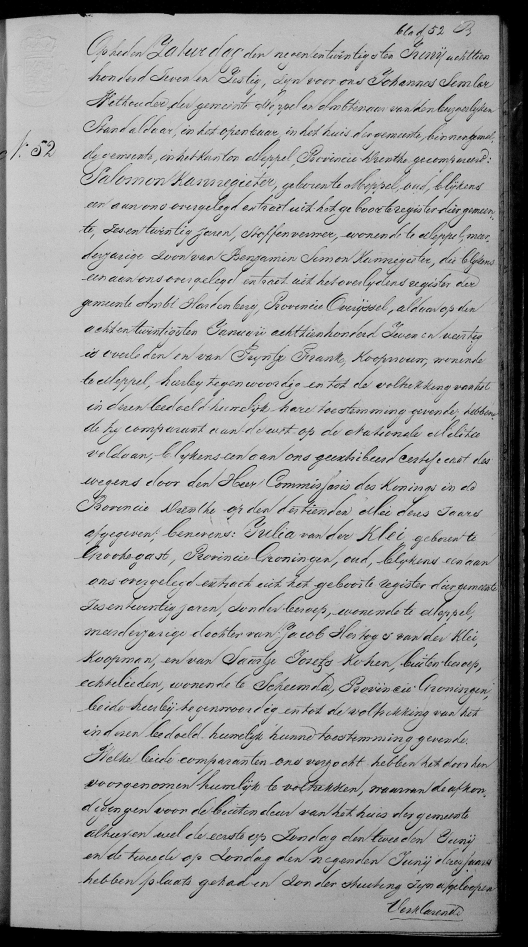 blad 52 B
Op heden Zaturdag den negenentwintigsten Junij achttien
honderd Zeven en Zestig, zijn voor ons Johannes Semler
Wethouder der gemeente Meppel en Ambtenaar van den burgerlijken
Stand aldaar, in het openbaar, in het huis der gemeente, binnen gemel-
N: 52
de gemeente, in het kanton Meppel, Provincie Drenthe gecompareerd:
Salomon Kannegieter, geboren te Meppel, oud, blijkens
een aan ons overgelegd extract uit het geboorteregister dier gemeen-
te, zesentwintig jaren, Stoffenverwer, wonende te Meppel, meer-
derjarige zoon van Benjamin Simon Kannegieter, die blijkens
een aan ons overgelegd extract uit het overlijdens register der
gemeente Ambt Hardenberg, Provincie Overijssel, aldaar op den
achtentwintigsten Januari achttienhonderd Zeven en veertig
is overleden en van Fruitje Frank, Koopvrouw, wonende
te Meppel, hierbij tegenwoordig en tot de voltrekking van het
in dezen bedoeld huwelijk hare toestemming gevende, hebben-
de hij comparant aan de wet op de Nationale Militie
voldaan, blijkens een aan ons geexhibeerd certificaat des-
wegens door den Heer Commissaris des Konings in de
Provincie Drenthe op den dertienden Mei dezes Jaars
afgegeven; benevens: Julia van der Klei, geboren te
Grootegast, Provincie Groningen, oud, blijkens een aan
ons overgelegd extract uit het geboorte register dier gemeente
zesentwintig jaren, zonder beroep, wonende te Meppel,
meerderjarige dochter van Jacob Hartogs van der Klei,
Koopman, en van Saartje Jozefs Kohen, buiten beroep,
echtelieden, wonende te Scheemda, Provincie Groningen,
beide hierbij tegenwoordig en tot de voltrekking van het
in dezen bedoeld huwelijk hunne toestemming gevende.
Welke beide comparanten ons verzocht hebben het door hen
voorgenomen huwelijk te voltrekken, waarvan de afkon-
digingen voor de buitendeur van het huis der gemeente
alhier en wel de eerste op Zondag den tweeden Junij
en de tweede op Zondag den negenden Junij dezes jaars
hebben plaats gehad en zonder stuiting zijn afgeloopen
Verklarende